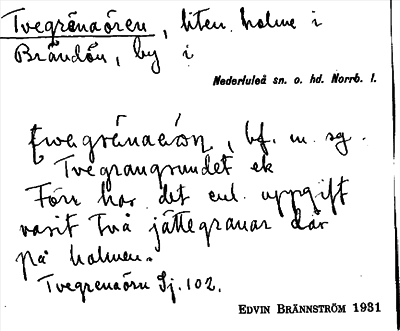 Tvegränaören, liten holme i
Brändön, by i
Nederluleå sn. o. hd. Norrb. l.
bf. m. sg.
Tvegrangrundet ek
Förr har det enl. uppgift
varit två jättegranar där
på holmen.
Tvegrenaörn Sj. 102.
EDVIN BRÄNNSTRÖM 1931